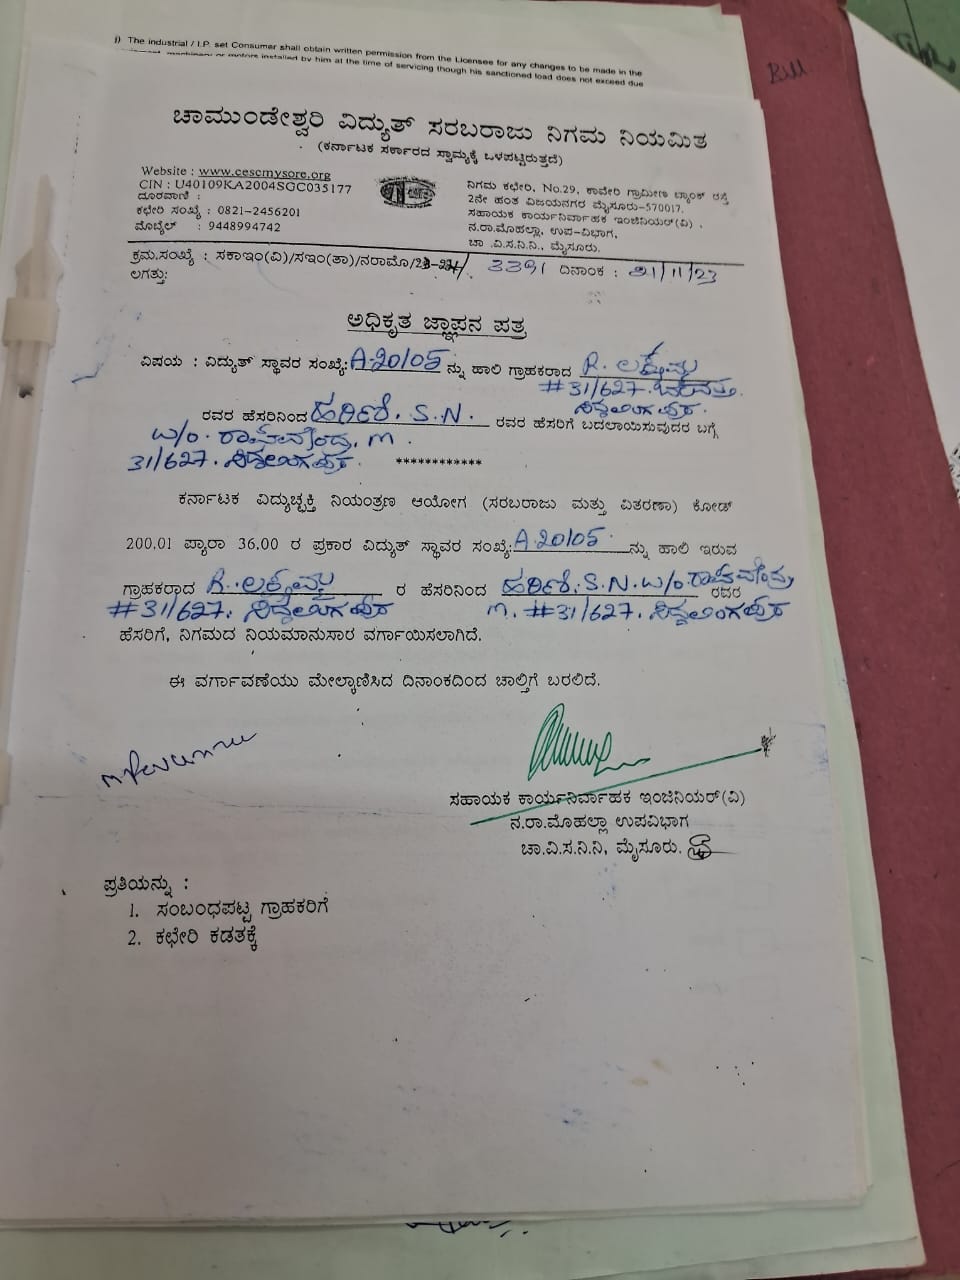 j) The industrial / I.P. set Consumer shall obtain written permission from the Licensee for any changes to be made in the
machinery or motors installed by him at the time of servicing though his sanctioned load does not exceed due
Bill
ಚಾಮುಂಡೇಶ್ವರಿ ವಿದ್ಯುತ್ ಸರಬರಾಜು ನಿಗಮ ನಿಯಮಿತ
(ಕರ್ನಾಟಕ ಸರ್ಕಾರದ ಸ್ವಾಮ್ಯಕ್ಕೆ ಒಳಪಟ್ಟಿರುತ್ತದೆ)
Website : www.cescmysore.org
CIN : U40109KA2004SGC035177
ದೂರವಾಣಿ :
ಕಛೇರಿ ಸಂಖ್ಯೆ : 0821-2456201
ಮೊಬೈಲ್ : 9448994742
ನಿಗಮ ಕಛೇರಿ, No.29, ಕಾವೇರಿ ಗ್ರಾಮೀಣ ಬ್ಯಾಂಕ್ ರಸ್ತೆ
2ನೇ ಹಂತ ವಿಜಯನಗರ ಮೈಸೂರು-570017.
ಸಹಾಯಕ ಕಾರ್ಯನಿರ್ವಾಹಕ ಇಂಜಿನಿಯರ್(ವಿ) .
ನ.ರಾ.ಮೊಹಲ್ಲಾ, ಉಪ-ವಿಭಾಗ,
ಚಾ .ವಿ.ಸ.ನಿ.ನಿ., ಮೈಸೂರು.
ಕ್ರಮ.ಸಂಖ್ಯೆ : ಸಕಾಇಂ(ವಿ)/ಸಇಂ(ತಾ)/ನರಾಮೊ/23-24/ 3391 ದಿನಾಂಕ : 21/11/23
ಲಗತ್ತು:
ಅಧಿಕೃತ ಜ್ಞಾಪನ ಪತ್ರ
ವಿಷಯ : ವಿದ್ಯುತ್ ಸ್ಥಾವರ ಸಂಖ್ಯೆ: A-20/05 ನ್ನು ಹಾಲಿ ಗ್ರಾಹಕರಾದ R. ಲಕ್ಷ್ಮಮ್ಮ
#31/627.
ಸಿದ್ದಲಿಂಗಪುರ.
ರವರ ಹೆಸರಿನಿಂದ ಹರಿಣಿ. S.N. ರವರ ಹೆಸರಿಗೆ ಬದಲಾಯಿಸುವುದರ ಬಗ್ಗೆ
w/o. ರಾಘವೇಂದ್ರ, m.
31/627. ಸಿದ್ದಲಿಂಗಪುರ. ************
ಕರ್ನಾಟಕ ವಿದ್ಯುಚ್ಛಕ್ತಿ ನಿಯಂತ್ರಣ ಆಯೋಗ (ಸರಬರಾಜು ಮತ್ತು ವಿತರಣಾ) ಕೋಡ್
200,01 ಪ್ಯಾರಾ 36.00 ರ ಪ್ರಕಾರ ವಿದ್ಯುತ್ ಸ್ಥಾವರ ಸಂಖ್ಯೆ: A-20/05 ನ್ನು ಹಾಲಿ ಇರುವ
ಗ್ರಾಹಕರಾದ R. ಲಕ್ಷ್ಮಮ್ಮ ರ ಹೆಸರಿನಿಂದ ಹರಿಣಿ. S.N. w/o. ರಾಘವೇಂದ್ರ ರವರ
#31/627. ಸಿದ್ದಲಿಂಗಪುರ m. #31/627. ಸಿದ್ದಲಿಂಗಪುರ
ಹೆಸರಿಗೆ, ನಿಗಮದ ನಿಯಮಾನುಸಾರ ವರ್ಗಾಯಿಸಲಾಗಿದೆ.
ಈ ವರ್ಗಾವಣೆಯು ಮೇಲ್ಕಾಣಿಸಿದ ದಿನಾಂಕದಿಂದ ಚಾಲ್ತಿಗೆ ಬರಲಿದೆ.
ಸಹಾಯಕ ಕಾರ್ಯನಿರ್ವಾಹಕ ಇಂಜಿನಿಯರ್(ವಿ)
ನ.ರಾ.ಮೊಹಲ್ಲಾ ಉಪವಿಭಾಗ
ಚಾ.ವಿ.ಸ.ನಿ.ನಿ, ಮೈಸೂರು.
ಪ್ರತಿಯನ್ನು :
1. ಸಂಬಂಧಪಟ್ಟ ಗ್ರಾಹಕರಿಗೆ
2. ಕಛೇರಿ ಕಡತಕ್ಕೆ